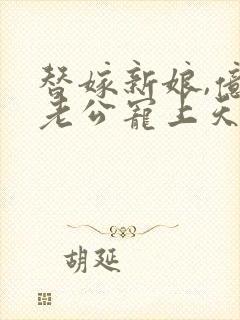 替嫁新娘,億
老公寵上天
胡延